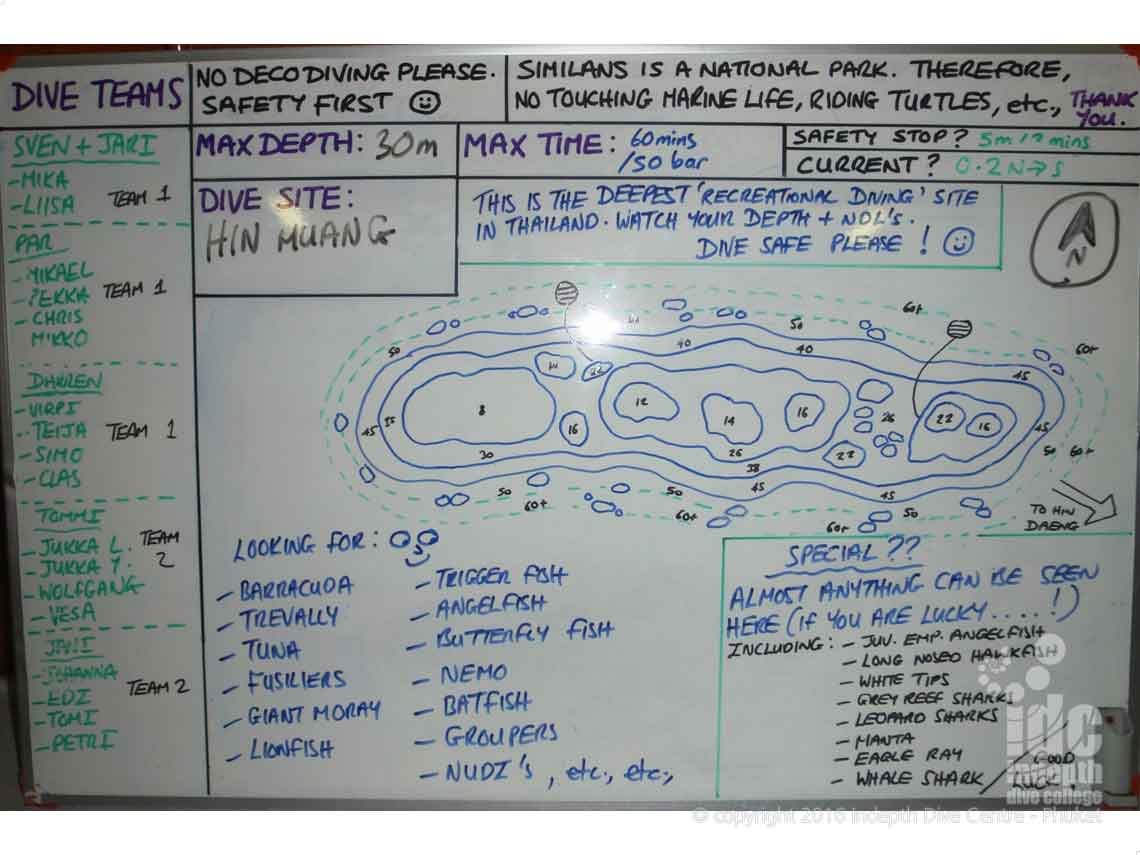 DIVE TEAMS
NO DECO DIVING PLEASE.
SAFETY FIRST
SIMILANS IS A NATIONAL PARK. THEREFORE,
NO TOUCHING MARINE LIFE, RIDING TURTLES, etc., THANK
YOU.
MAX DEPTH: 30m
MAX TIME: 60mins
/50 bar
SAFETY STOP? 5m
mins
CURRENT? 0.2 N→S
DIVE SITE:
HIN MUANG
THIS IS THE DEEPEST 'RECREATIONAL DIVING' SITE
IN THAILAND. WATCH YOUR DEPTH + NDL'S.
DIVE SAFE PLEASE!
N
SVEN + JARI
- MIKA
- LIISA
TEAM 1
PAR
- MIKAEL
- PEKKA
TEAM 1
- CHRIS
MIKKO
DARREN
- VIRPI
- TEIJA
TEAM 1
- SIMO
- CLAS
TOMMI
- JUKKA L.
TEAM
2
- JUKKA Y.
- WOLFGANG
- VESA
JANI
- JOHANNA
TEAM 2
- EDI
- TOMI
- PETRI
60+
50
50
40
40
60+
45
14
22
8
12
14
16
26
22
16
35
45
16
45
30
26
22
38
50
60+
45
45
50
50
50
60+
60+
60+
TO HIN
DAENG
LOOKING FOR:
- BARRACUDA
- TREVALLY
- TUNA
- FUSILIERS
- GIANT MORAY
- LIONFISH
- TRIGGER FISH
- ANGELFISH
- BUTTERFLY FISH
- NEMO
- BATFISH
- GROUPERS
- NUDI'S, etc., etc.,
SPECIAL ??
ALMOST ANYTHING CAN BE SEEN
HERE (IF YOU ARE LUCKY.....!)
INCLUDING: - JUV. EMP. ANGELFISH
- LONG NOSED HAWKFISH
- WHITE TIPS
- GREY REEF SHARKS
- LEOPARD SHARKS
- MANTA
- EAGLE RAY
- WHALE SHARK
GOOD
LUCK
idc
indepth
dive college
© copyright 2016 Indepth Dive Centre - Phuket